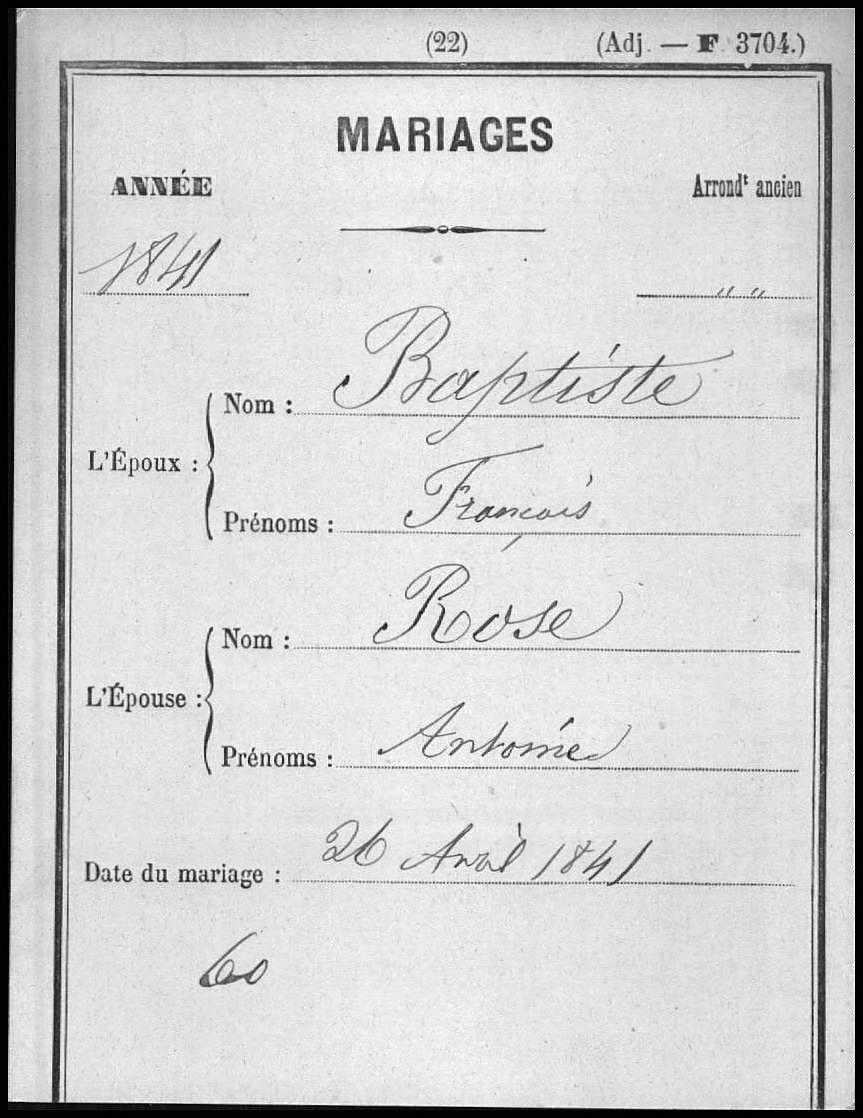 (22) (Adj. — F 3704.)
MARIAGES
ANNÉE Arrondt ancien
1841 " "
Nom : Baptiste
L'Époux :
Prénoms : François
Nom : Rose
L'Épouse :
Prénoms : Antoine
Date du mariage : 26 Avril 1841
60